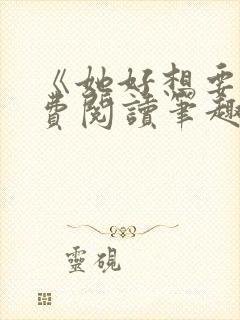 《她好想要
費閱讀筆趣
靈硯